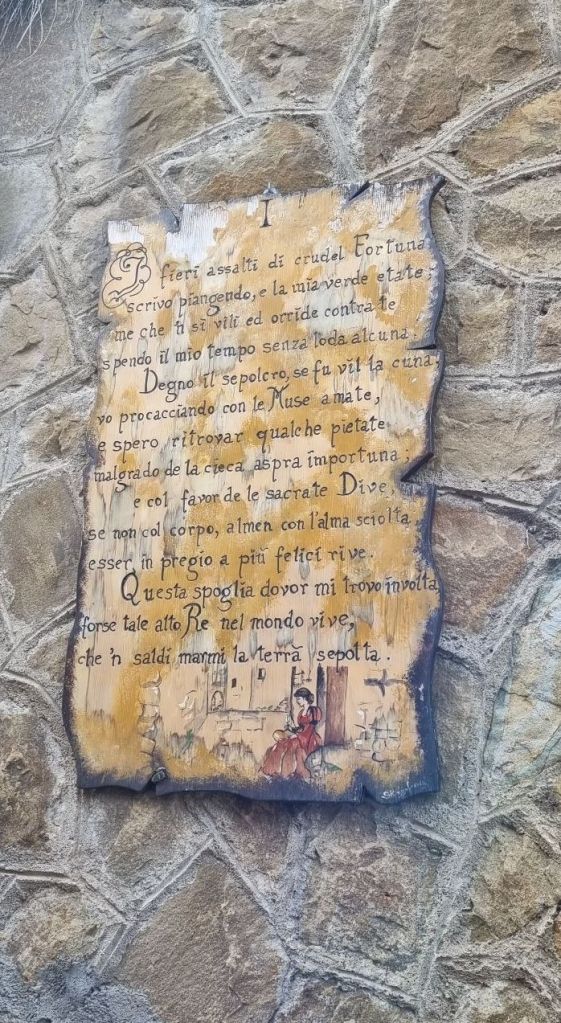 I
I fieri assalti di crudel Fortuna
scrivo piangendo, e la mia verde etate;
me che 'n sì vili ed orride contrate
spendo il mio tempo senza loda alcuna.
Degno il sepolcro, se fu vil la cuna,
vo procacciando con le Muse amate,
e spero ritrovar qualche pietate
malgrado de la cieca aspra importuna;
e col favor de le sacrate Dive,
se non col corpo, almen con l'alma sciolta
esser in pregio a più felici rive.
Questa spoglia dovor mi trovo involta,
forse tale alto Re nel mondo vive,
che 'n saldi marmi la terrà sepolta.